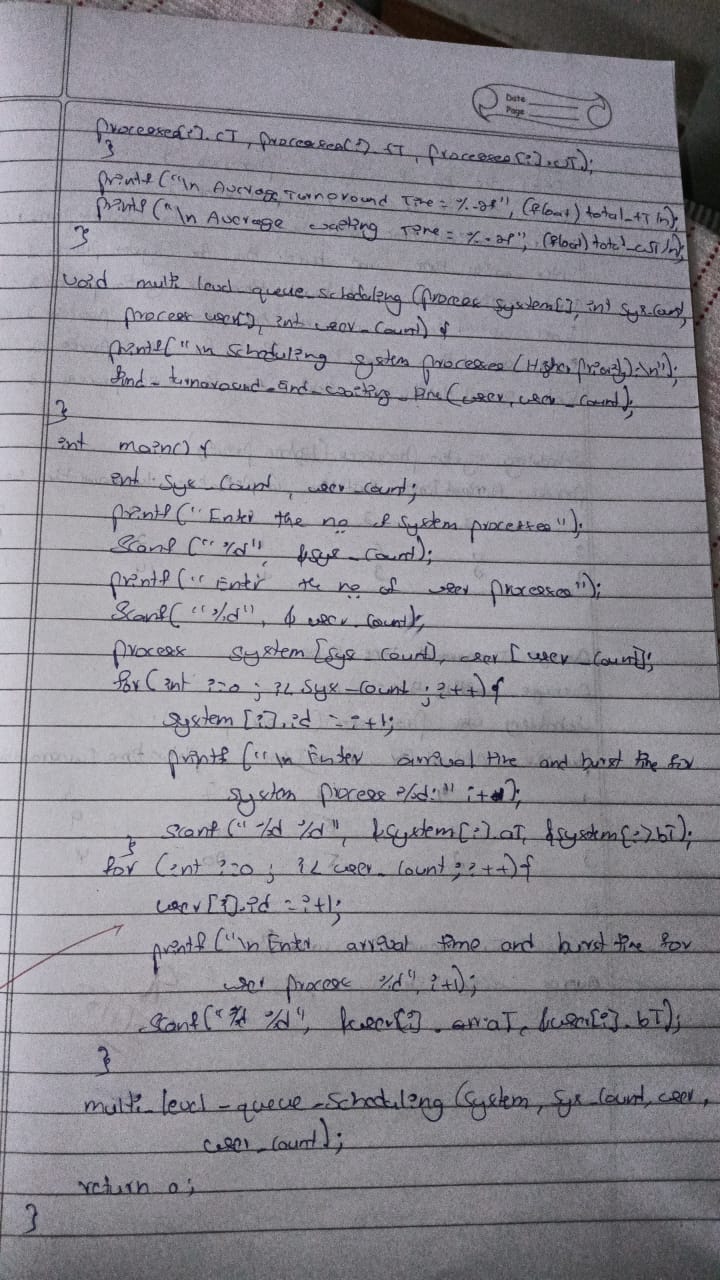 Date
Page
processes[i].cT, processes[i].tT, processes[i].wT);
}
printf("\n Average Turnaround Time = %.2f", (float) total_tT/n);
printf("\n Average waiting Time = %.2f", (float) total_wT/n);
}
void multi level queue_scheduling (process system[], int sys_count,
process user[], int user_count) {
printf("\n Scheduling system processes (Higher priority):\n");
find_turnaround_and_waiting_time(user, user_count);
}
int main() {
int sys_count, user_count;
printf("Enter the no of system processes");
scanf("%d", &sys_count);
printf("Enter the no of user processes");
scanf("%d", &user_count);
process system[sys_count], user[user_count];
for(int i=0; i<sys_count; i++) {
system[i].id = i+1;
printf("\n Enter arrival time and burst time for
system process %d:" i+1);
scanf("%d %d", &system[i].aT, &system[i].bT);
}
for (int i=0; i<user_count; i++) {
user[i].id = i+1;
printf("\n Enter arrival time and burst time for
user process %d", i+1);
scanf("%d %d", &user[i].arriaT, &user[i].bT);
}
multi_level_queue_scheduling(system, sys_count, user,
user_count);
return 0;
}